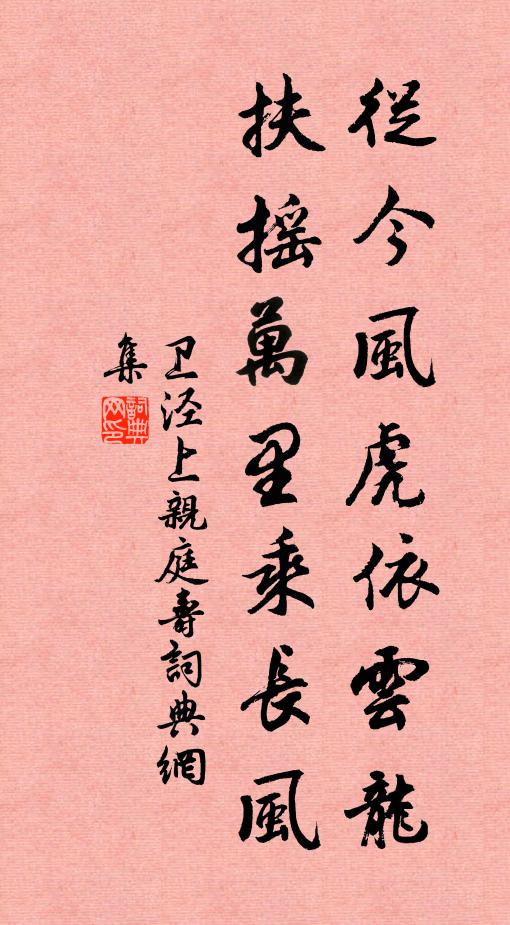 從今風虎依雲龍
扶搖萬里乘長風
卫泾上親庭壽詞典網
集
詞典网印